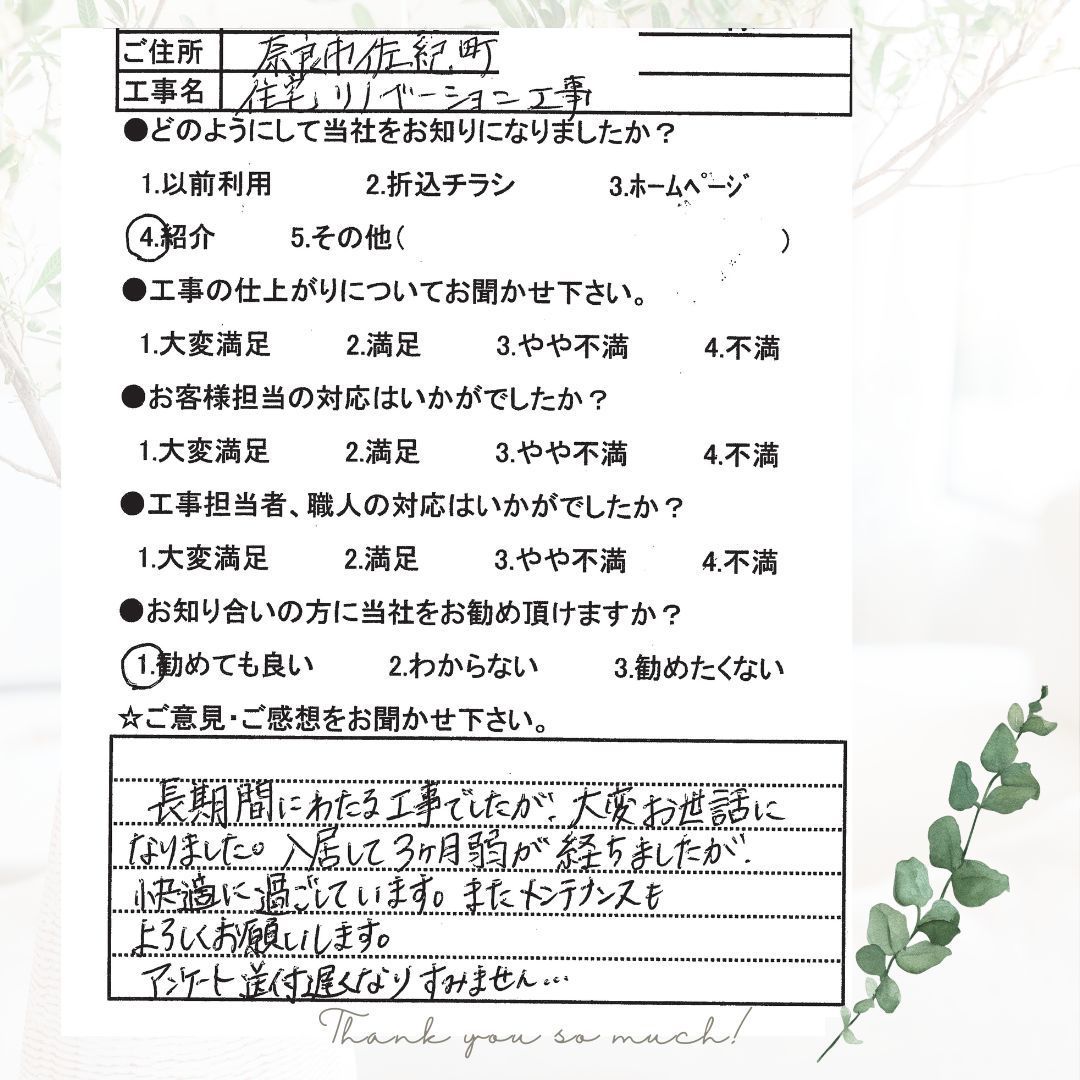 ご住所 奈良市佐紀町
工事名 住宅リノベーション工事
●どのようにして当社をお知りになりましたか？
1.以前利用 2.折込チラシ 3.ﾎｰﾑﾍﾟｰｼﾞ
4.紹介 5.その他( )
●工事の仕上がりについてお聞かせ下さい。
1.大変満足 2.満足 3.やや不満 4.不満
●お客様担当の対応はいかがでしたか？
1.大変満足 2.満足 3.やや不満 4.不満
●工事担当者、職人の対応はいかがでしたか？
1.大変満足 2.満足 3.やや不満 4.不満
●お知り合いの方に当社をお勧め頂けますか？
1.勧めても良い 2.わからない 3.勧めたくない
☆ご意見・ご感想をお聞かせ下さい。
長期間にわたる工事でしたが、大変お世話に
なりました。入居して3ヶ月弱が経ちましたが、
快適に過ごしています。またメンテナンスも
よろしくお願いします。
アンケート送付遅くなりすみません…
Thank you so much!